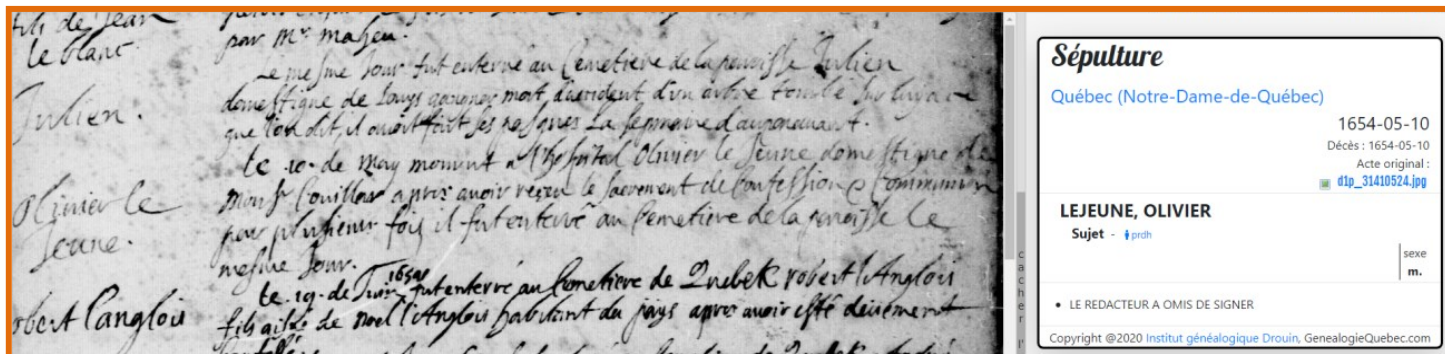 fils de Jean
le blanc.
par Mr. maheu.
Julien.
Le mesme Jour fut enterré au Cemetiere de la paroisse Julien
domestique de Louys mort d'accident d'un arbre tombé sur luy a ce
que l'on dit, il avoit fait ses pasques la sepmaine d'auparavant.
Olivier le
Jeune.
Le 10. de May mourut a l'hospital Olivier le Jeune domestique de
Mons.r Couillar apres avoir receu le sacrement de Confession & Communion
par plusieurs fois il fut enterré au Cemetiere de la paroisse le
mesme Jour.
obert l'anglois
Le 19. de Juin 1654 fut enterré au Cemetiere de Quebek robert l'Anglois
fils aisné de noel l'Anglois habitant du pays apres avoir esté deuëment
Sépulture
Québec (Notre-Dame-de-Québec)
1654-05-10
Décès : 1654-05-10
Acte original :
d1p_31410524.jpg
LEJEUNE, OLIVIER
Sujet - prdh
sexe
m.
• LE REDACTEUR A OMIS DE SIGNER
Copyright @2020 Institut généalogique Drouin, GenealogieQuebec.com
cacher l'